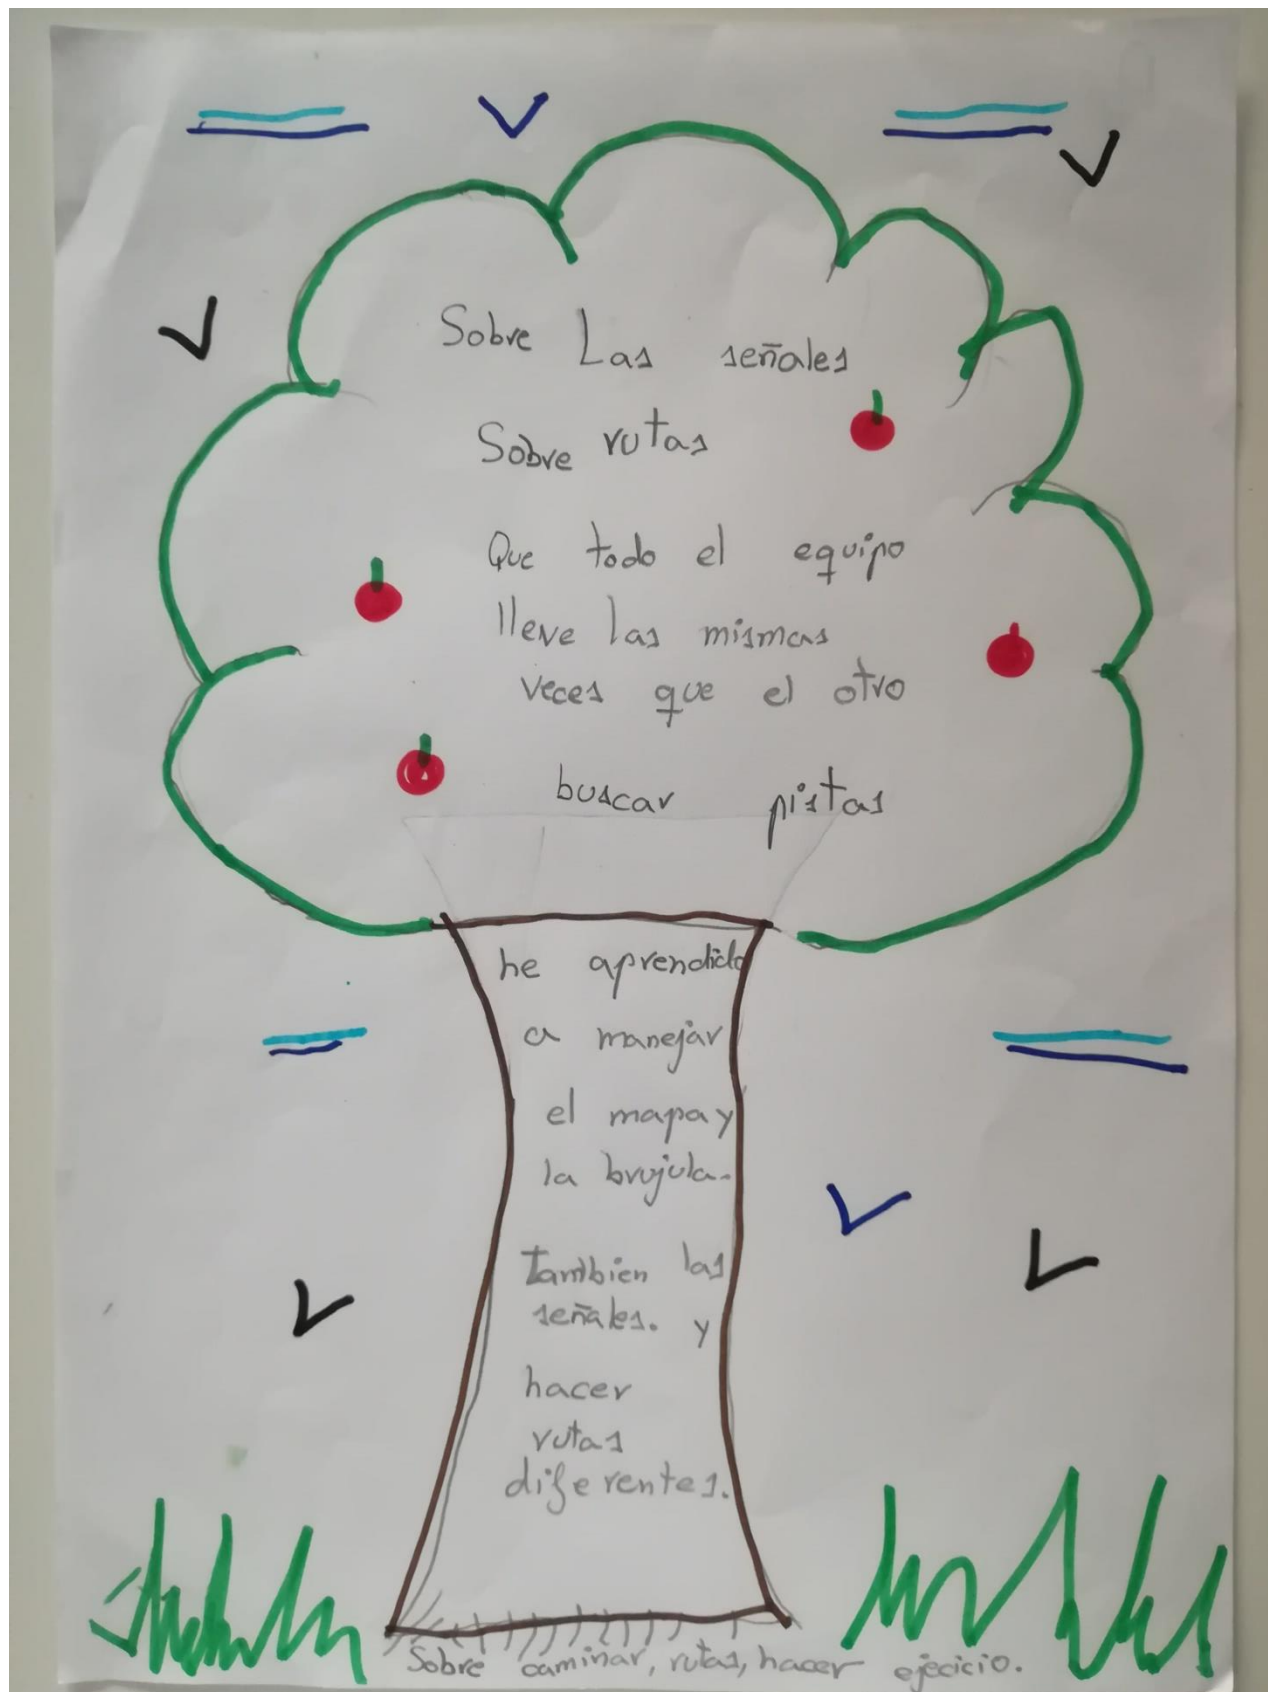 Sobre Las señales
Sobre rutas
Que todo el equipo
lleve las mismas
veces que el otro
buscar pistas
he aprendido
a manejar
el mapa y
la brujula.
Tambien las
señales. y
hacer
rutas
diferentes.
Sobre caminar, rutas, hacer ejecicio.